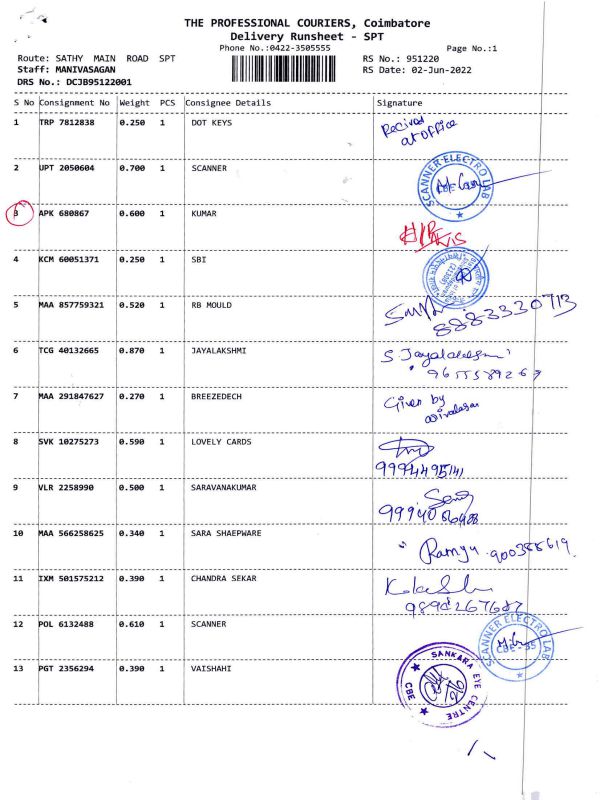 THE PROFESSIONAL COURIERS, Coimbatore
Delivery Runsheet - SPT
Phone No.:0422-3505555
Page No.:1
Route: SATHY MAIN ROAD SPT
RS No.: 951220
Staff: MANIVASAGAN
RS Date: 02-Jun-2022
DRS No.: DCJB95122001
S No Consignment No Weight PCS Consignee Details Signature
1 TRP 7812838 0.250 1 DOT KEYS Recived
at office
2 UPT 2050604 0.700 1 SCANNER SCANNER ELECTRO LAB
3 APK 680867 0.600 1 KUMAR
4 KCM 60051371 0.250 1 SBI
5 MAA 857759321 0.520 1 RB MOULD
8883330713
6 TCG 40132665 0.870 1 JAYALAKSHMI S. Jayalakshmi
7 MAA 291847627 0.270 1 BREEZEDECH Given by
8 SVK 10275273 0.590 1 LOVELY CARDS
9994495141
9 VLR 2258990 0.500 1 SARAVANAKUMAR
10 MAA 566258625 0.340 1 SARA SHAEPWARE Ramya 900388619
11 IXM 501575212 0.390 1 CHANDRA SEKAR
12 POL 6132488 0.610 1 SCANNER SCANNER ELECTRO LAB
CBE - 35
13 PGT 2356294 0.390 1 VAISHAHI SANKARA EYE CENTRE
CBE